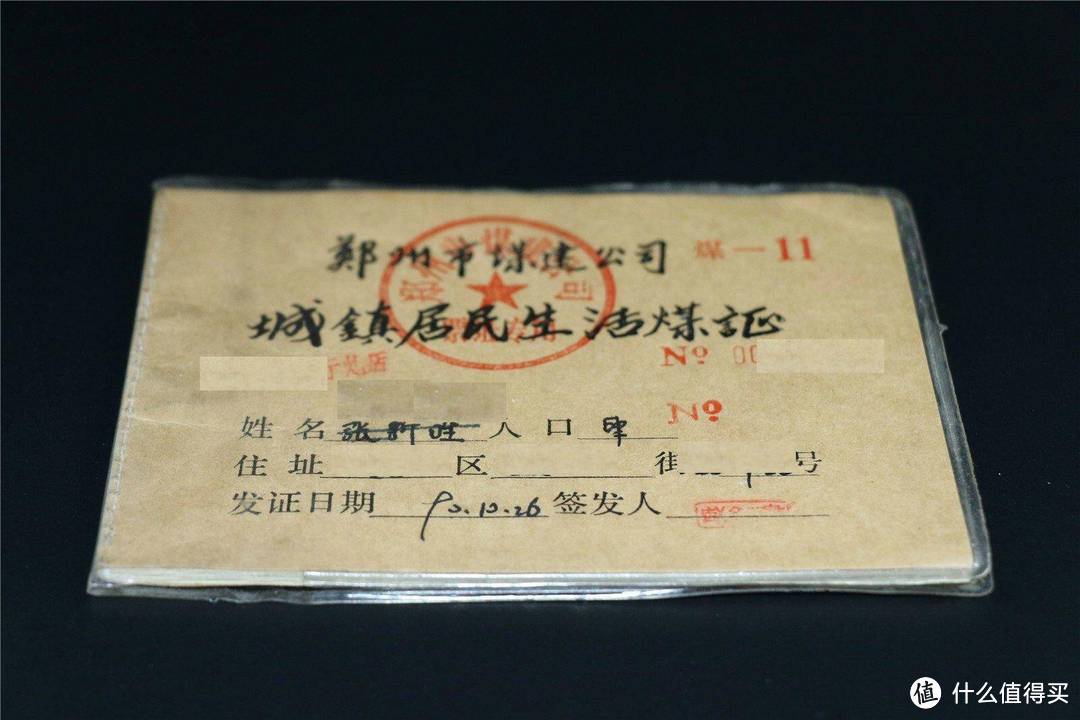 郑州市煤建公司
煤—11
城鎮居民生活煤証
No 00
No
姓名 张新胜 人口 单
住址 区 街 号
发证日期 90.10.26 签发人
值 什么值得买